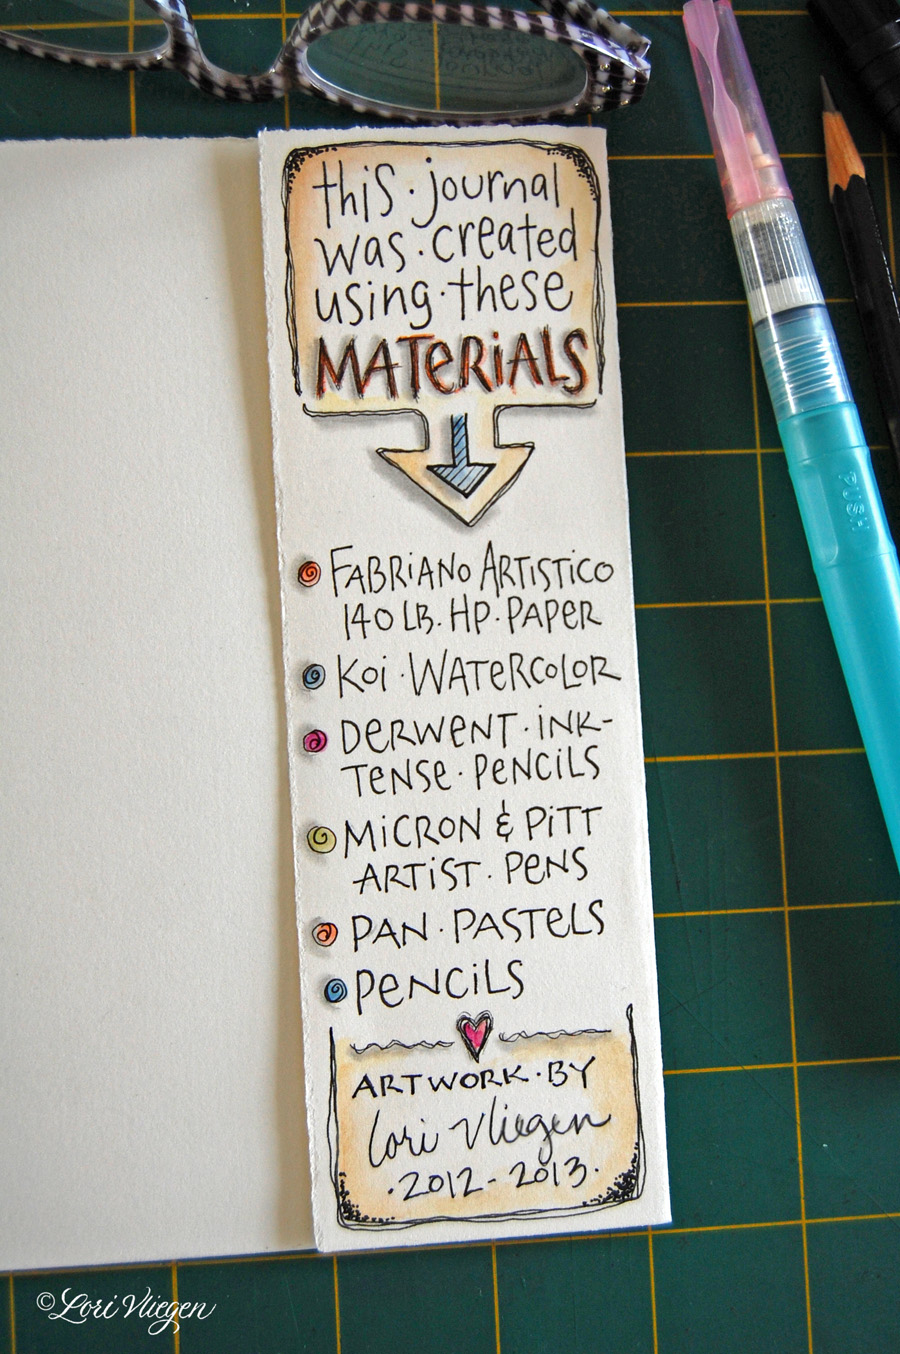 this · journal
was · created
using · these
MATERiALS
FABRiANO ARTISTICO
140 LB. HP · PAPER
KOi · WATERCOLOR
DERWENT · iNK-
TENSE · PENCILS
MiCRON & PiTT
ARTiST · PENS
PAN · PASTELS
PENCiLS
ARTWORK · BY
Lori Vliegen
· 2012 - 2013 ·
PUSH
© Lori Vliegen